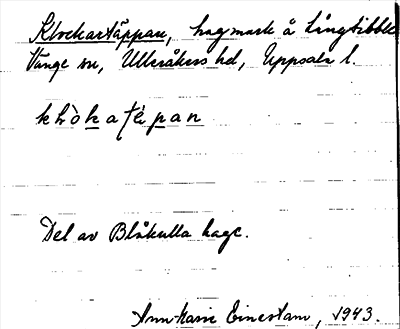 Klockartäppan, hagmark å Långtibble
Vänge sn, Ulleråkers hd, Uppsala l.
khòkatépan
Del av Blåkulla hage.
Ann Marie Einestam, 1943.